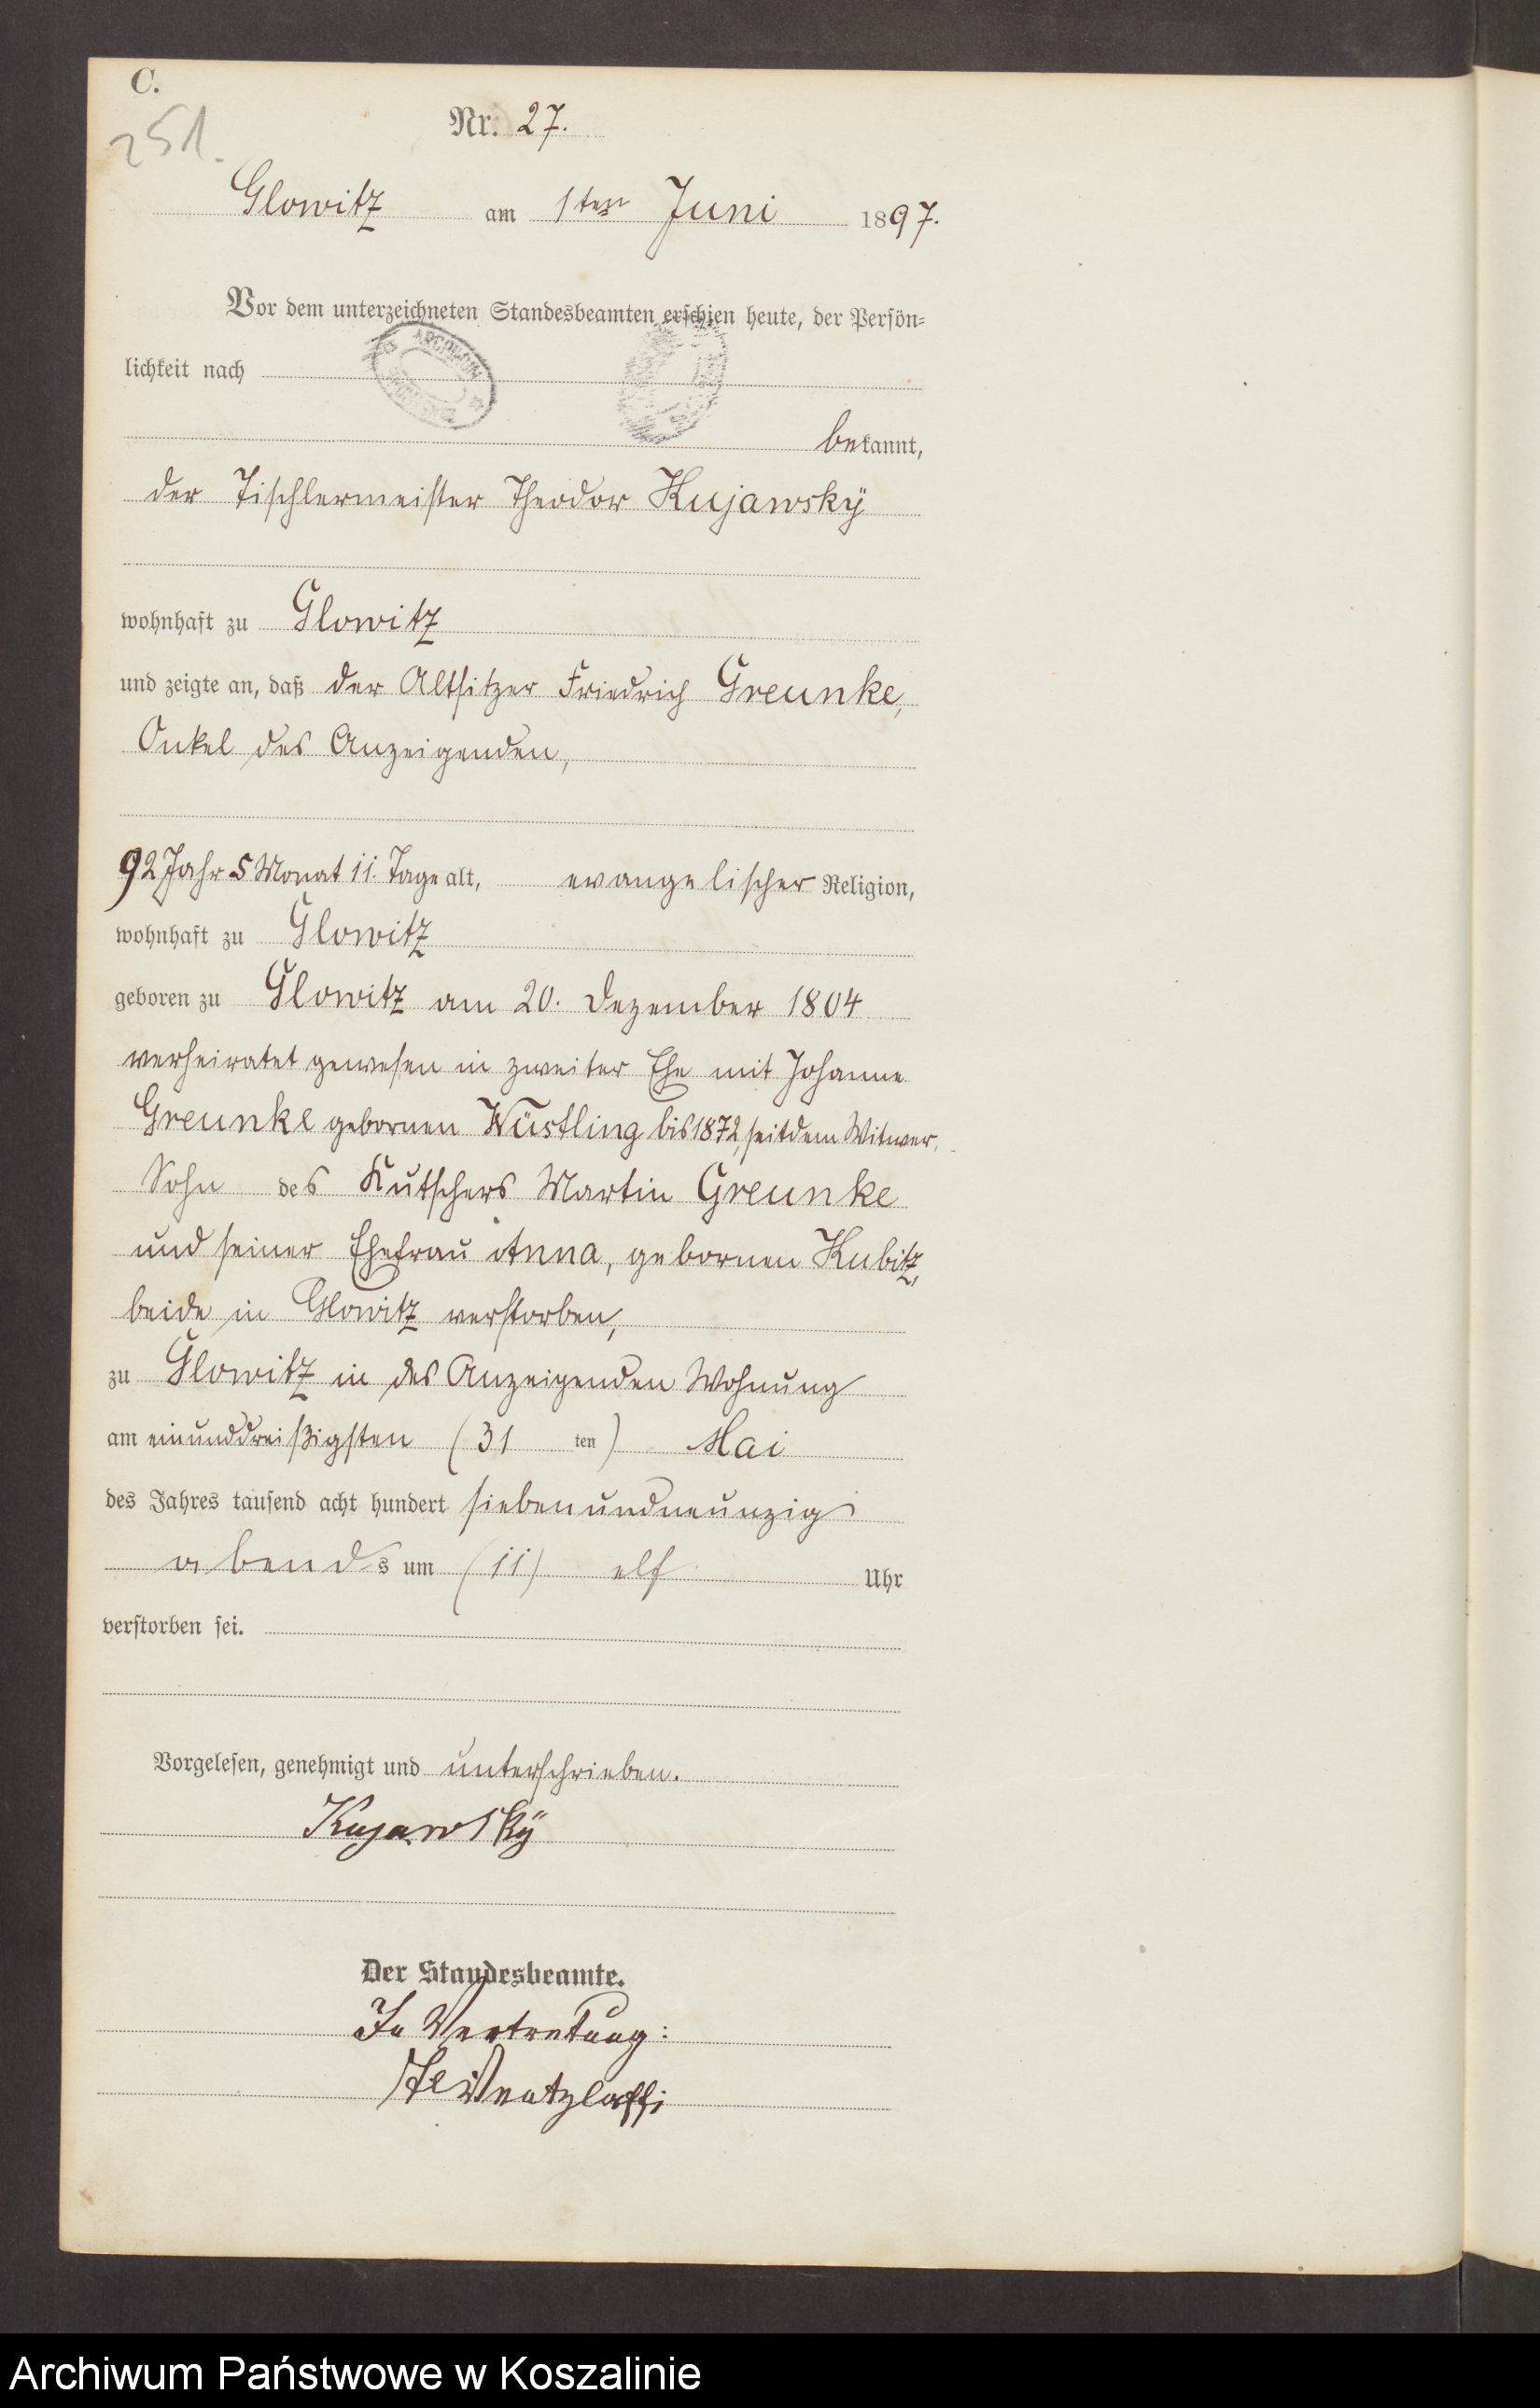 C.
251.
Nr. 27.
Glowitz am 1ten Juni 1897.
Vor dem unterzeichneten Standesbeamten erschien heute, der Persön=
lichkeit nach
bekannt,
der Tischlermeister Theodor Kujawskÿ
wohnhaft zu Glowitz
und zeigte an, daß der Altsitzer Friedrich Greunke,
Onkel des Anzeigenden,
92 Jahr 5 Monat 11 Tage alt, evangelischer Religion,
wohnhaft zu Glowitz
geboren zu Glowitz am 20. Dezember 1804
verheiratet gewesen in zweiter Ehe mit Johanne
Greunke gebornen Wüstling bis 1872, seitdem Witwer,
Sohn des Kutschers Martin Greunke
und seiner Ehefrau Anna, gebornen Kubitz,
beide in Glowitz verstorben,
zu Glowitz in des Anzeigenden Wohnung
am einunddreißigsten (31 ten) Mai
des Jahres tausend acht hundert siebenundneunzig
abends um (11) elf Uhr
verstorben sei.
Vorgelesen, genehmigt und unterschrieben.
Kujawskÿ
Der Standesbeamte.
In Vertretung:
Archiwum Państwowe w Koszalinie